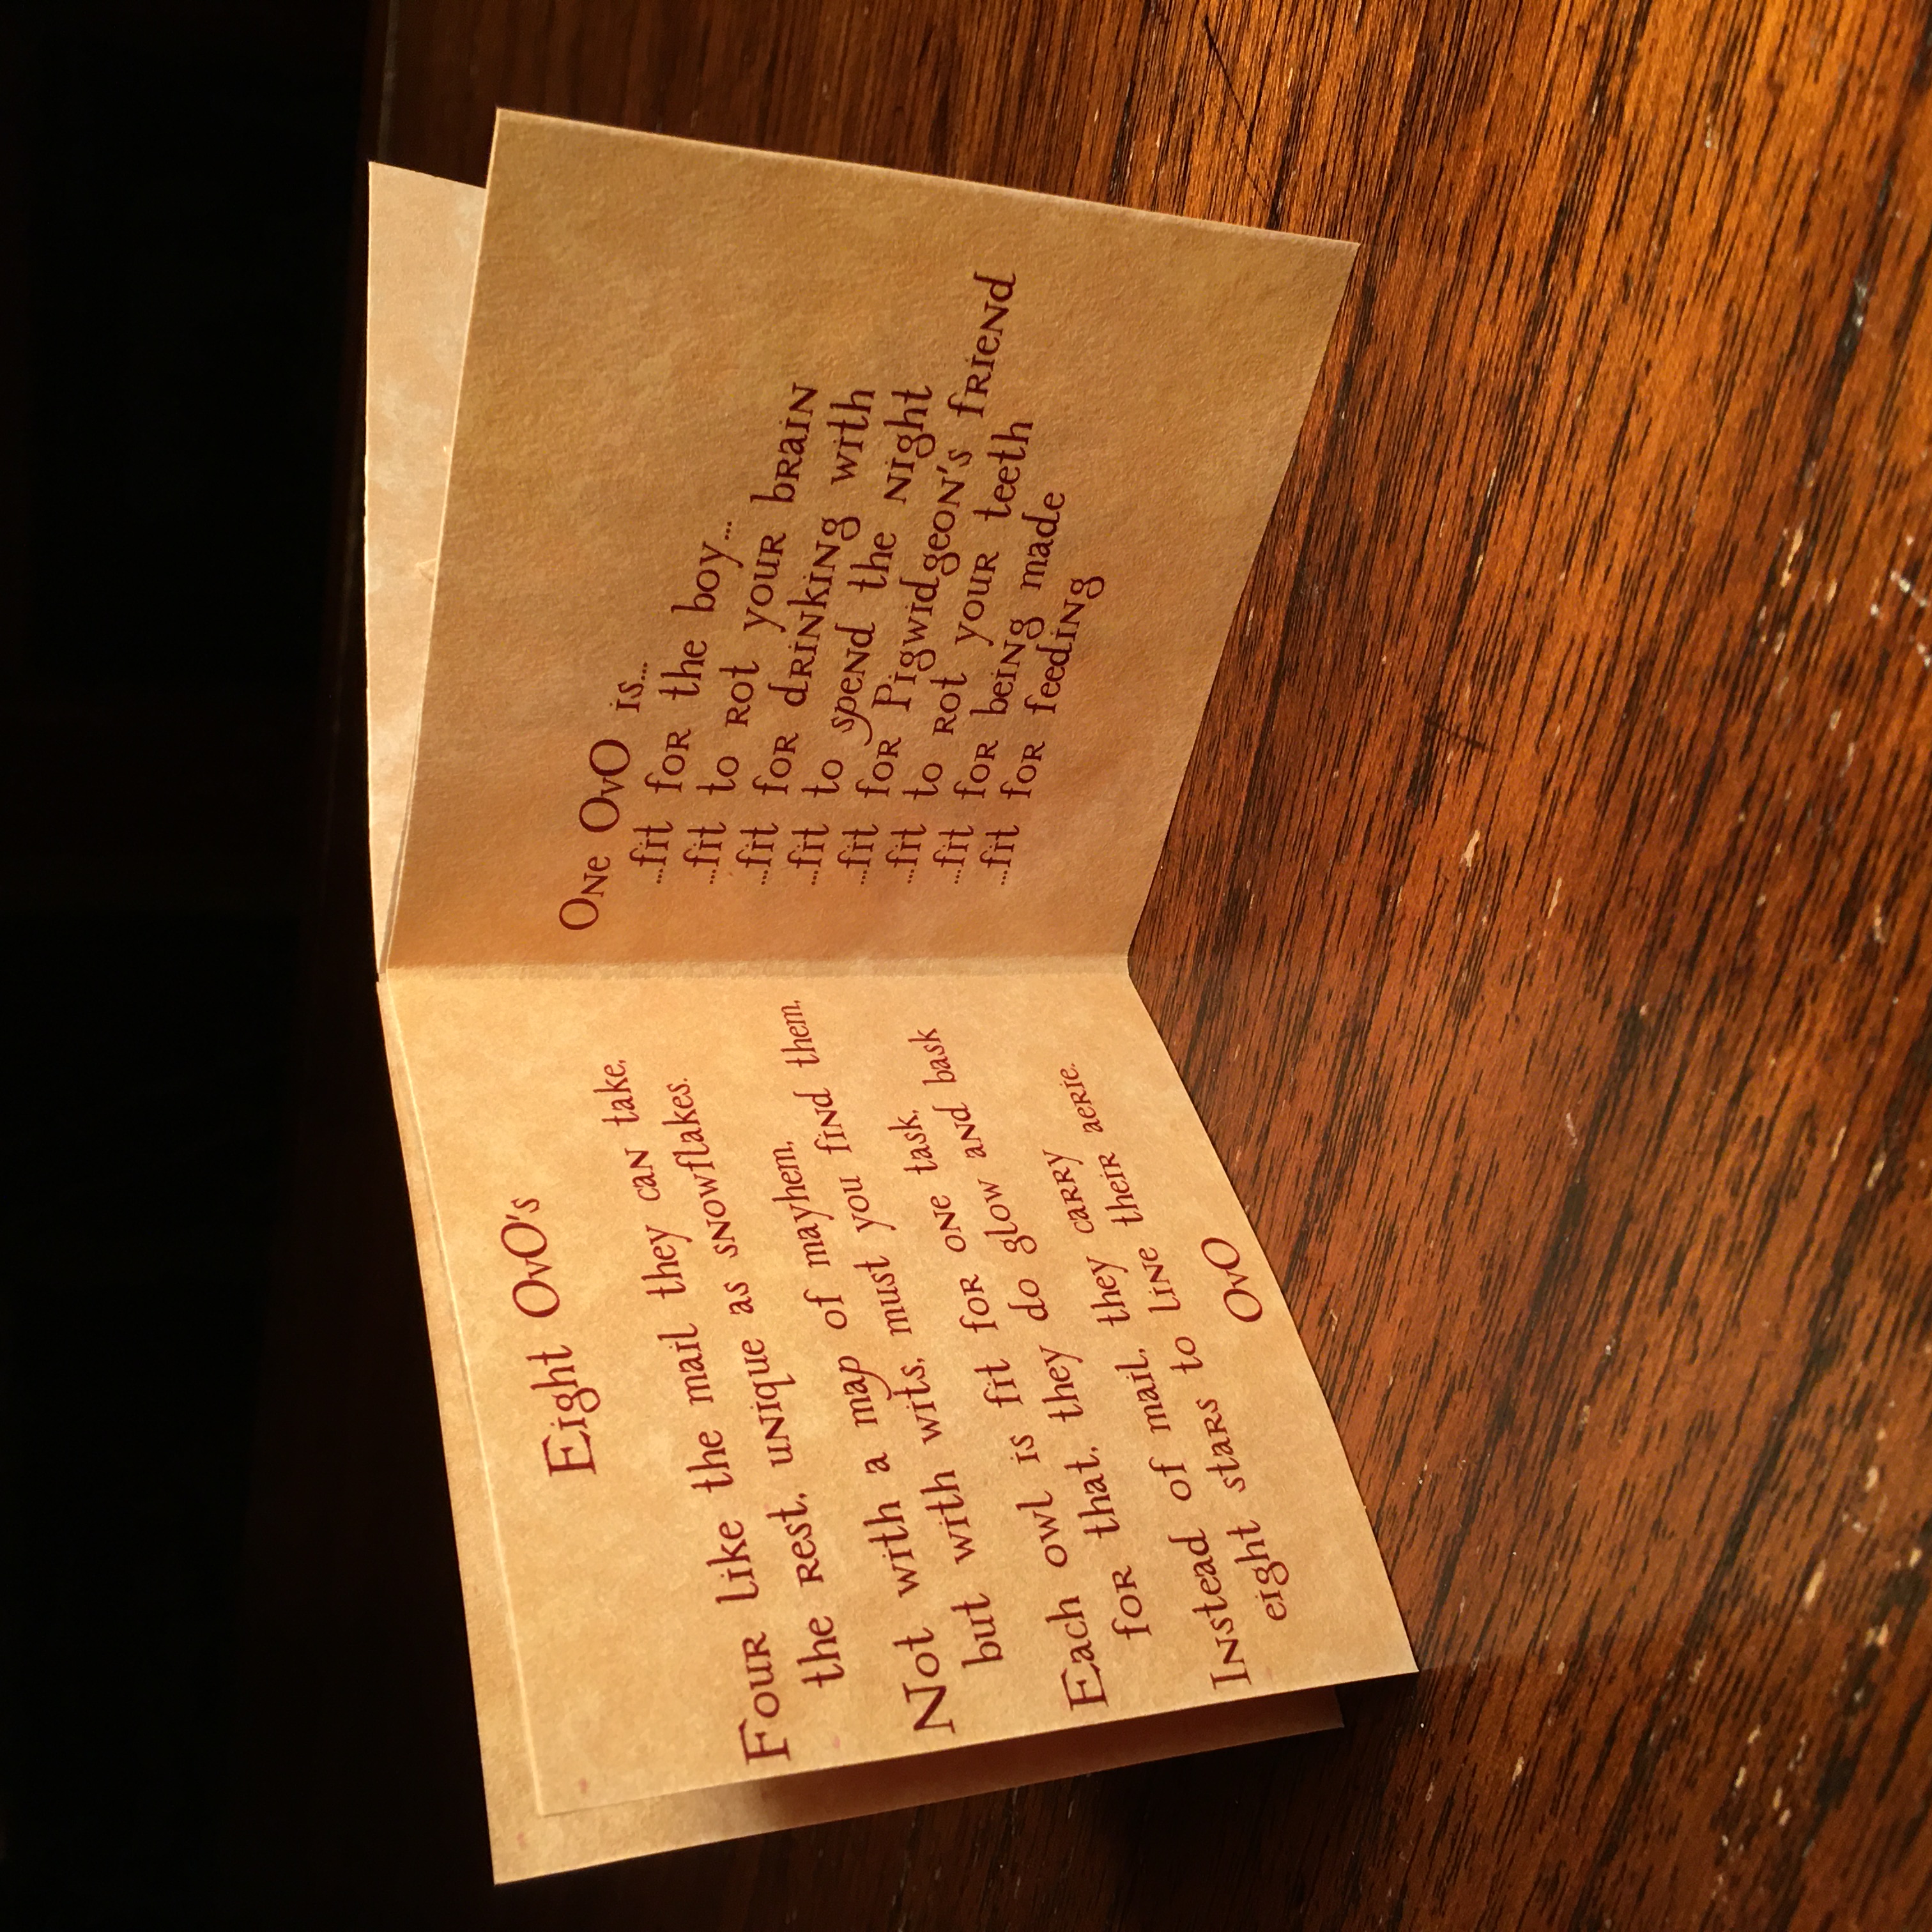 Eight OvO's
Four like the mail they can take,
the rest, unique as snowflakes.
Not with a map of mayhem,
but with wits, must you find them,
Each owl is fit for one task,
for that, they do glow and bask
Instead of mail, they carry
eight stars to line their aerie.
OvO
One OvO is...
...fit for the boy...
...fit to rot your brain
...fit for drinking with
...fit to spend the night
...fit for Pigwidgeon's friend
...fit to rot your teeth
...fit for being made
...fit for feeding